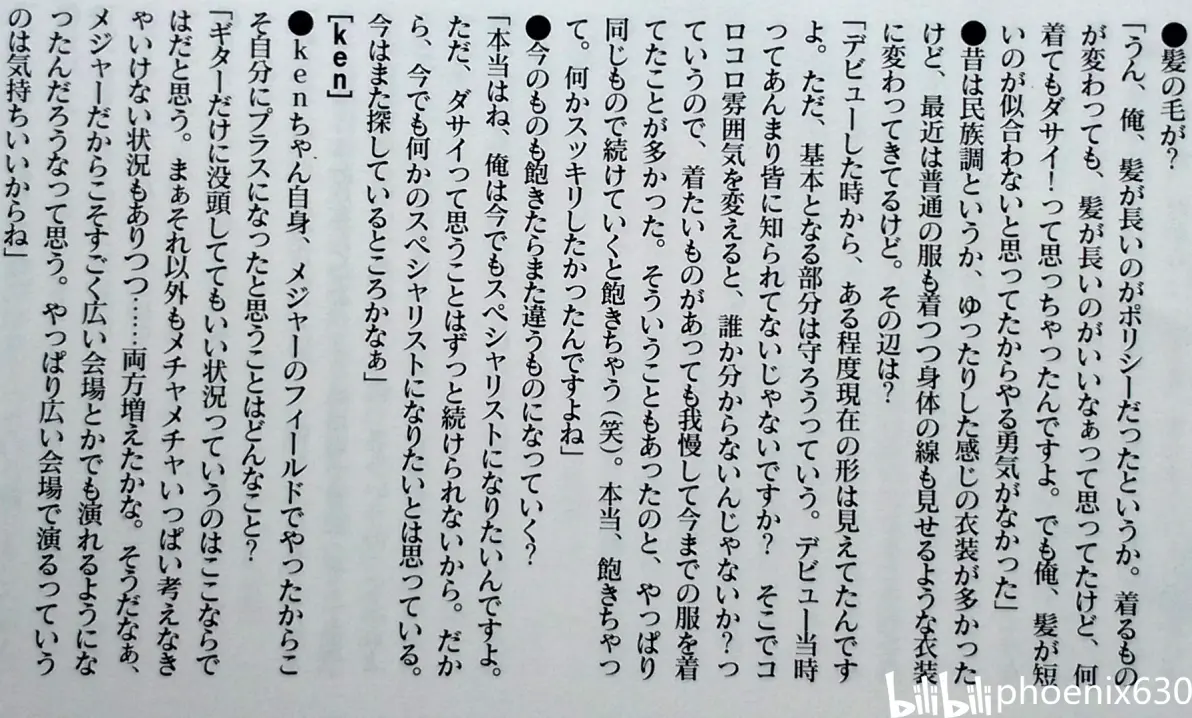 ●髪の毛が?
「うん、俺、髪が長いのがポリシーだったというか。着るもの
が変わっても、髪が長いのがいいなぁって思ってたけど、何
着てもダサイ!って思っちゃったんですよ。でも俺、髪が短
いのが似合わないと思ってたからやる勇気がなかった」
●昔は民族調というか、ゆったりした感じの衣装が多かった
けど、最近は普通の服も着つつ身体の線も見せるような衣装
に変わってきてるけど。その辺は?
「デビューした時から、ある程度現在の形は見えてたんです
よ。ただ、基本となる部分は守ろうっていう。デビュー当時
ってあんまり皆に知られてないじゃないですか? そこでコ
ロコロ雰囲気を変えると、誰か分からないんじゃないか?っ
ていうので、着たいものがあっても我慢して今までの服を着
てたことが多かった。そういうこともあったのと、やっぱり
同じもので続けていくと飽きちゃう(笑)。本当、飽きちゃっ
て。何かスッキリしたかったんですよね」
●今のものも飽きたらまた違うものになっていく?
「本当はね、俺は今でもスペシャリストになりたいんですよ。
ただ、ダサイって思うことはずっと続けられないから。だか
ら、今でも何かのスペシャリストになりたいとは思っている。
今はまた探しているところかなぁ」
[ken]
●kenちゃん自身、メジャーのフィールドでやったからこ
そ自分にプラスになったと思うことはどんなこと?
「ギターだけに没頭しててもいい状況っていうのはここならで
はだと思う。まぁそれ以外もメチャメチャいっぱい考えなき
ゃいけない状況もありつつ……両方増えたかな。そうだなぁ、
メジャーだからこそすごく広い会場とかでも演れるようにな
ったんだろうなって思う。やっぱり広い会場で演るっていう
のは気持ちいいからね」
bilibili phoenix630